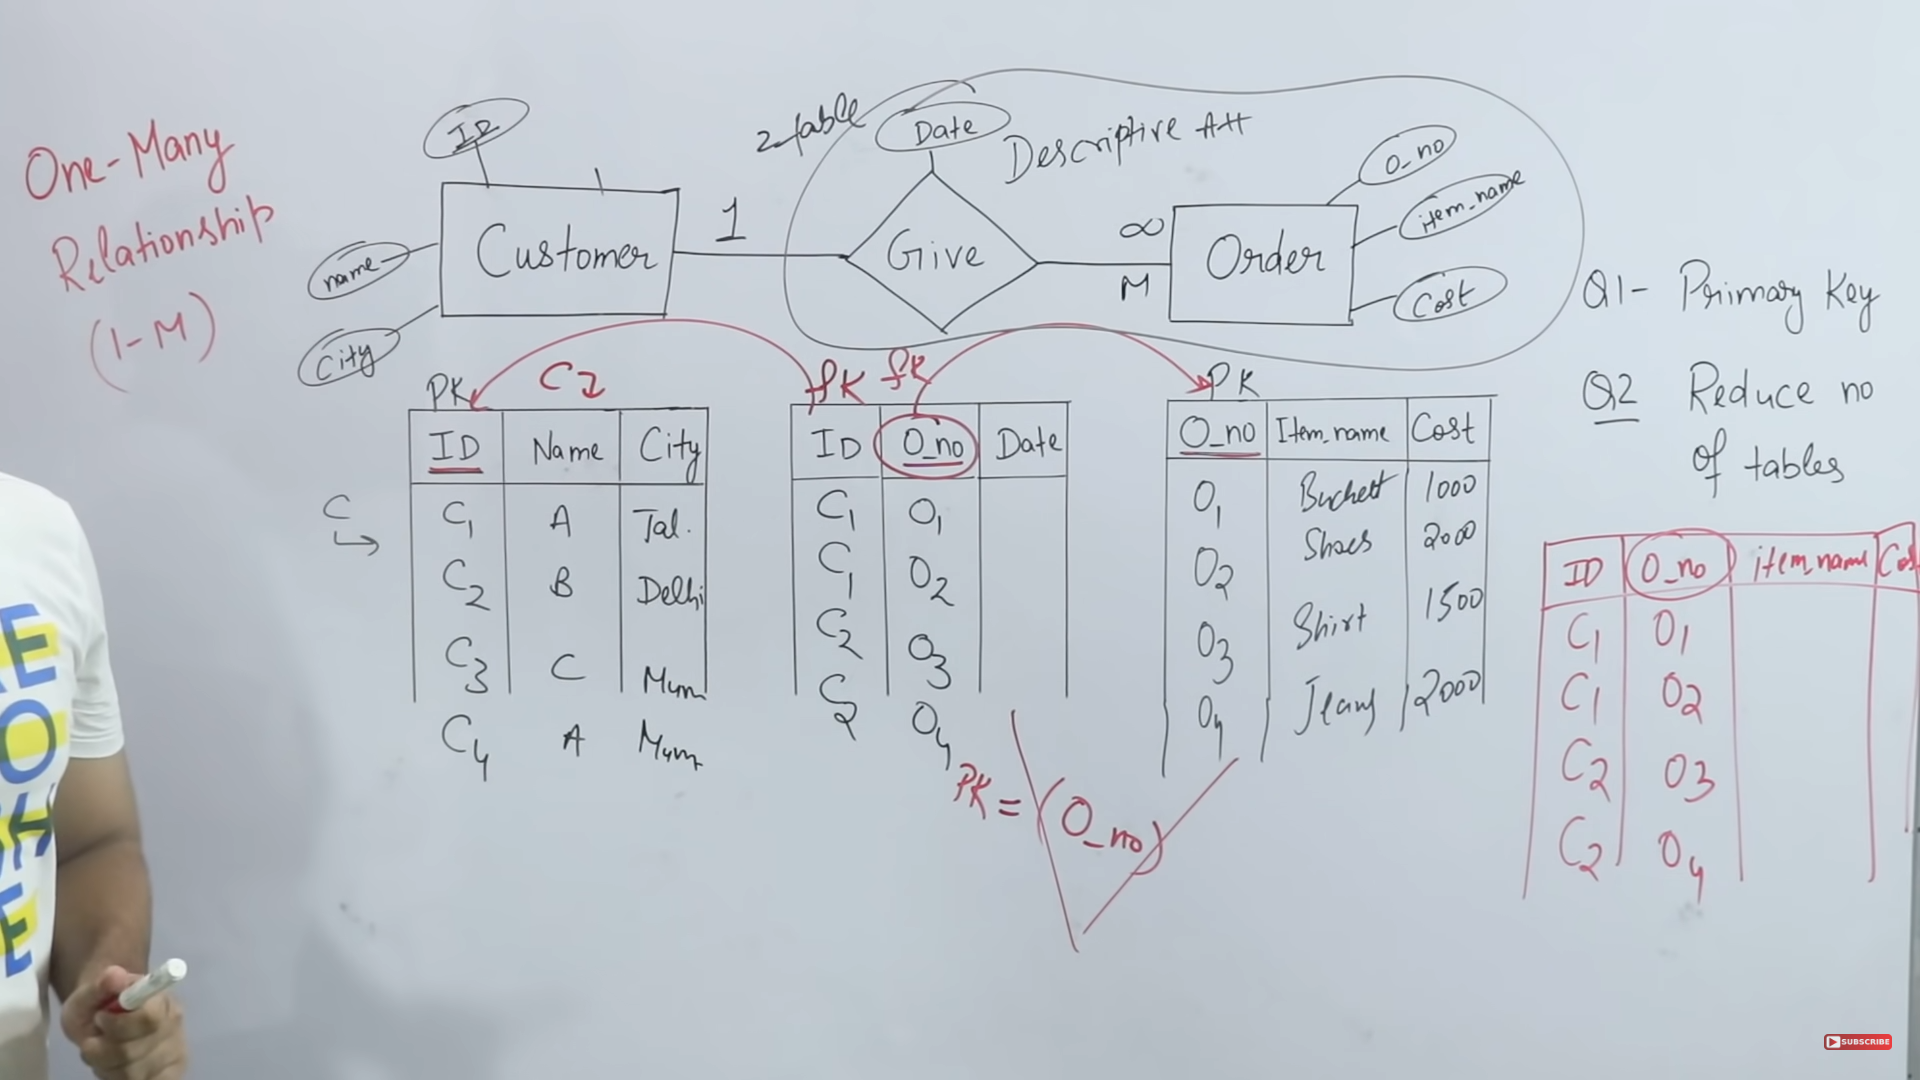 One-Many
Relationship
(1-M)
ID
name
City
Customer
1
2 table
Date
Descriptive Att
Give
∞
M
Order
O_no
item_name
Cost
Q1- Primary Key
Q2 Reduce no
of tables
PK
ID Name City
C1 A Jal.
C2 B Delhi
C3 C Mum
C4 A Mum
fk fk
ID O_no Date
C1 O1
C1 O2
C2 O3
C2 O4
PK = (O_no)
PK
O_no Item_name Cost
O1 1000
O2 Shoes 2000
O3 Shirt 1500
O4 Jeans 2000
ID O_no item_name Cos
C1 O1
C1 O2
C2 O3
C2 O4
C
SUBSCRIBE